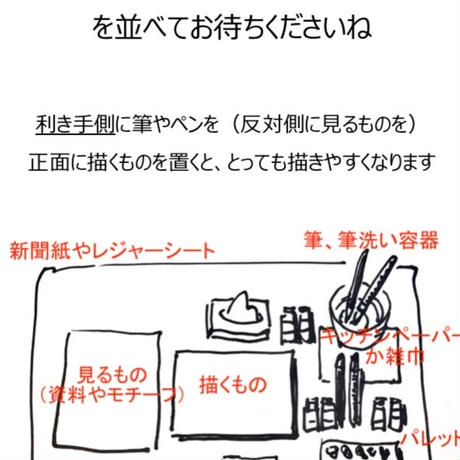 を並べてお待ちくださいね
利き手側に筆やペンを（反対側に見るものを）
正面に描くものを置くと、とっても描きやすくなります
新聞紙やレジャーシート
筆、筆洗い容器
キッチンペーパー
か雑巾
見るもの
（資料やモチーフ）
描くもの
パレット